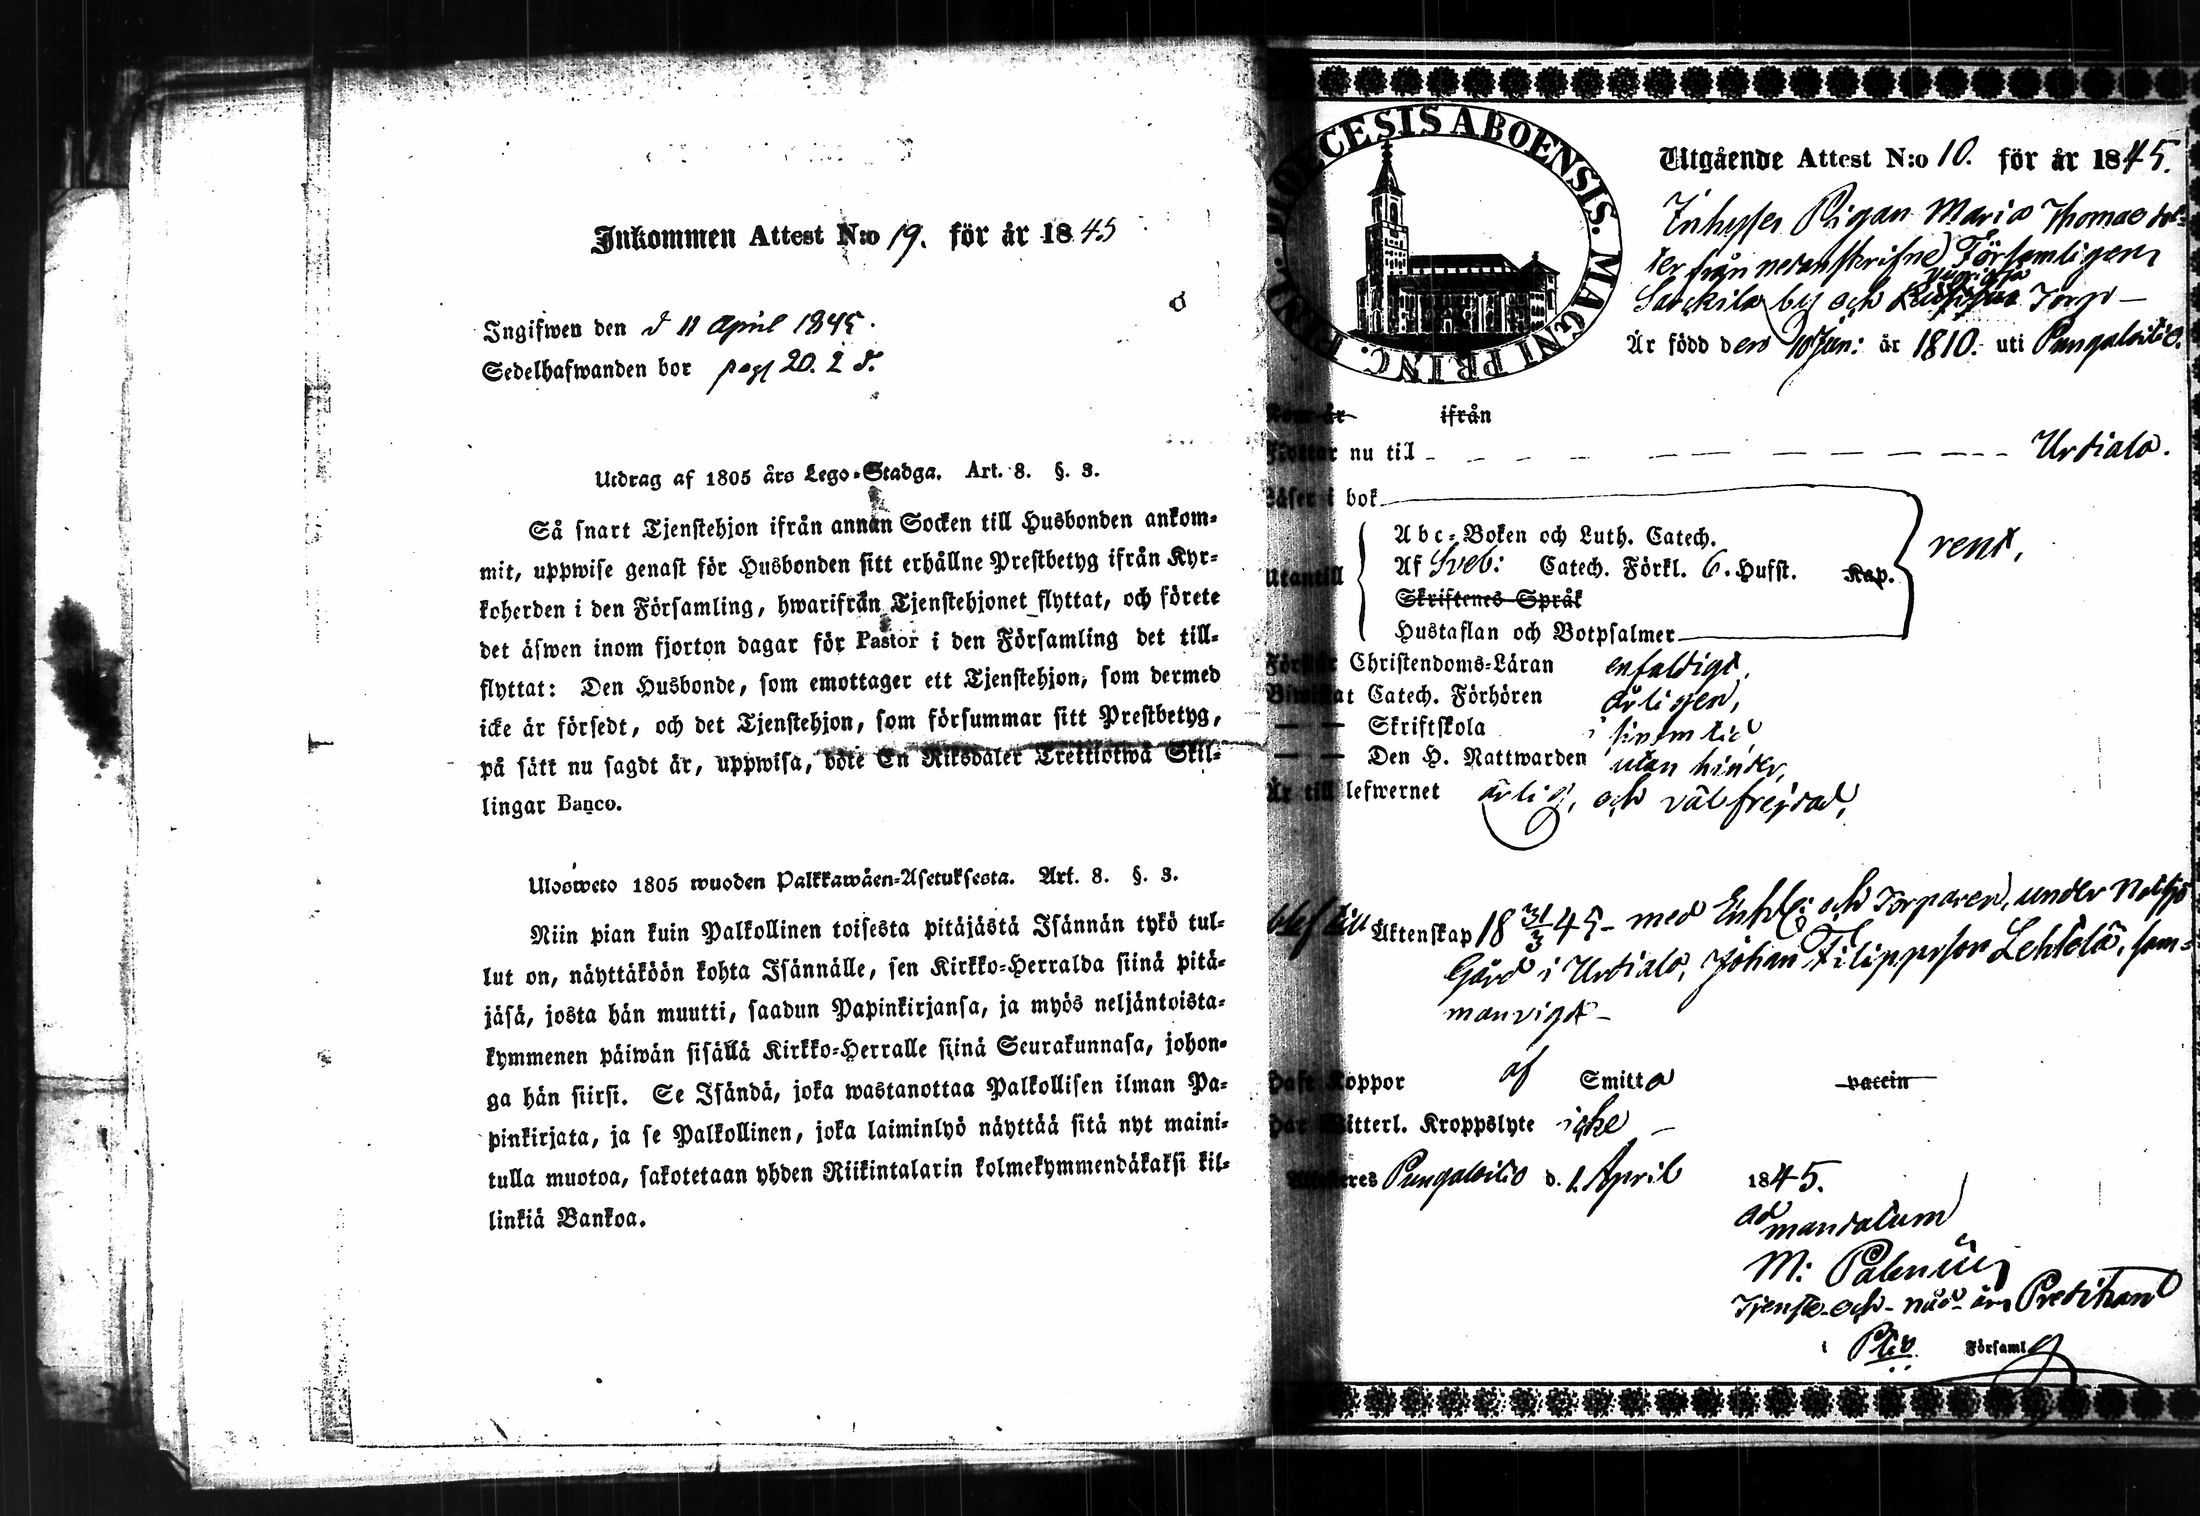 Inkommen Attest N:o 19. för år 1845
Ingifwen den d 11 April 1845.
Sedelhafwanden bor pag 20. 2 d.
Utdrag af 1805 års Lego-Stadga. Art. 8. §. 3.
Så snart Tjenstehjon ifrån annan Socken till Husbonden ankom-
mit, uppwise genast för Husbonden sitt erhållne Prestbetyg ifrån Kyr-
koherden i den Församling, hwarifrån Tjenstehjonet flyttat, och förete
det äfwen inom fjorton dagar för Pastor i den Församling det till-
flyttat: Den Husbonde, som emottager ett Tjenstehjon, som dermed
icke är försedt, och det Tjenstehjon, som försummar sitt Prestbetyg,
på sätt nu sagdt är, uppwisa, böte En Riksdaler Trettiotwå Skil-
lingar Banco.
Ulosweto 1805 wuoden Palkkawäen-Asetuksesta. Art. 8. §. 3.
Niin pian kuin Palkollinen toisesta pitäjästä Isännän tykö tul-
lut on, näyttäköön kohta Isännälle, sen Kirkko-Herralda siinä pitä-
jäsä, josta hän muutti, saadun Papinkirjansa, ja myös neljäntoista-
kymmenen päiwän sisällä Kirkko-Herralle siinä Seurakunnasa, johon-
ga hän siirsi. Se Isändä, joka wastanottaa Palkollisen ilman Pa-
pinkirjata, ja se Palkollinen, joka laiminlyö näyttää sitä nyt maini-
tulla muotoa, sakotetaan yhden Riikintalarin kolmekymmendäkaksi kil-
linkiä Bankoa.
DIOECESIS ABOENSIS. MAGNI PRINC. FINL.
Utgående Attest N:o 10. för år 1845.
Inhyses Pigan Maria Thomae dot-
ter från nedanskrifne Församlingens
Sarkila by och Torp
Är född den 10 Jun: år 1810. uti Pungalaitio.
Kom år ifrån
Flyttar nu till Urdiala.
Läser i bok
Utantill
Abc-Boken och Luth. Catech.
Af Sveb: Catech. Förkl. 6. Hufst. Kap.
Skriftenes Språk
Hustaflan och Botpsalmer
rent,
Förstår Christendoms-Läran enfaldigt,
Biwistat Catech. Förhören årligen,
— — Skriftskola i sin tid
— — Den H. Nattwarden utan hinder,
Är till lefwernet ärlig, och välfrejdad,
blef till Äktenskap 18 31/3 45 med Enkl: och Torparen, under
Gård i Urdiala, Johan Filippsson Lehtelä, sam-
manvigd
Haft Koppor af Smitta vaccin
Har Witterl. Kroppslyte icke
Attesteres Pungalaitio d. 1. April 1845.
ad mandatum
M: Palenius
Tjenste-och-nåd-års Predikant
i Församlg